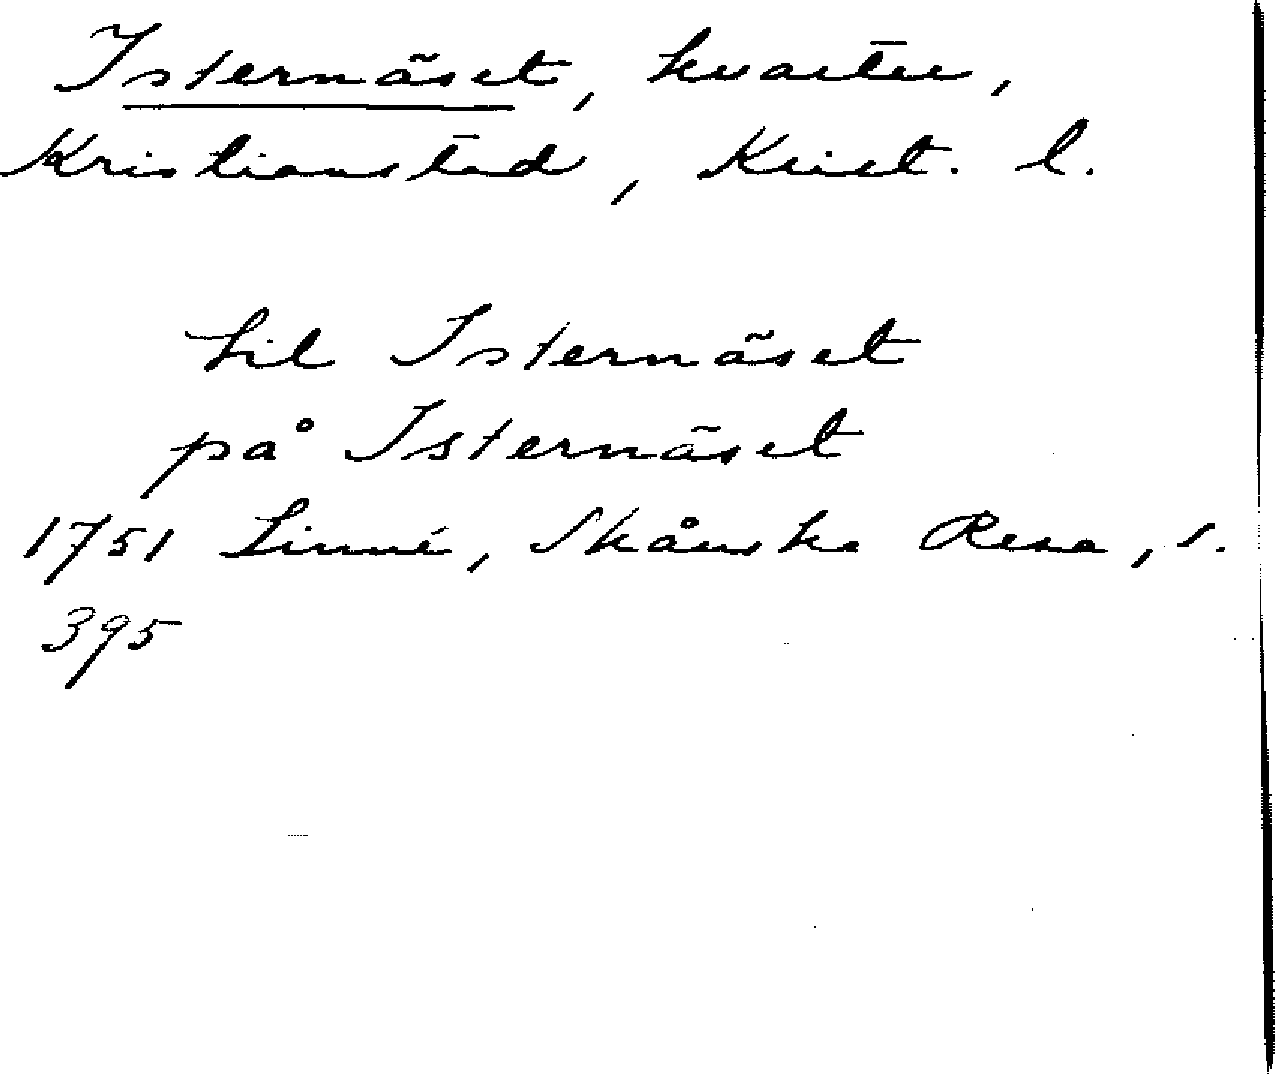 Isternäset, kvarter,
Kristianstad, Krist. l.
til Isternäset
på Isternäset
1751 Linné, Skånska Resa, s.
395